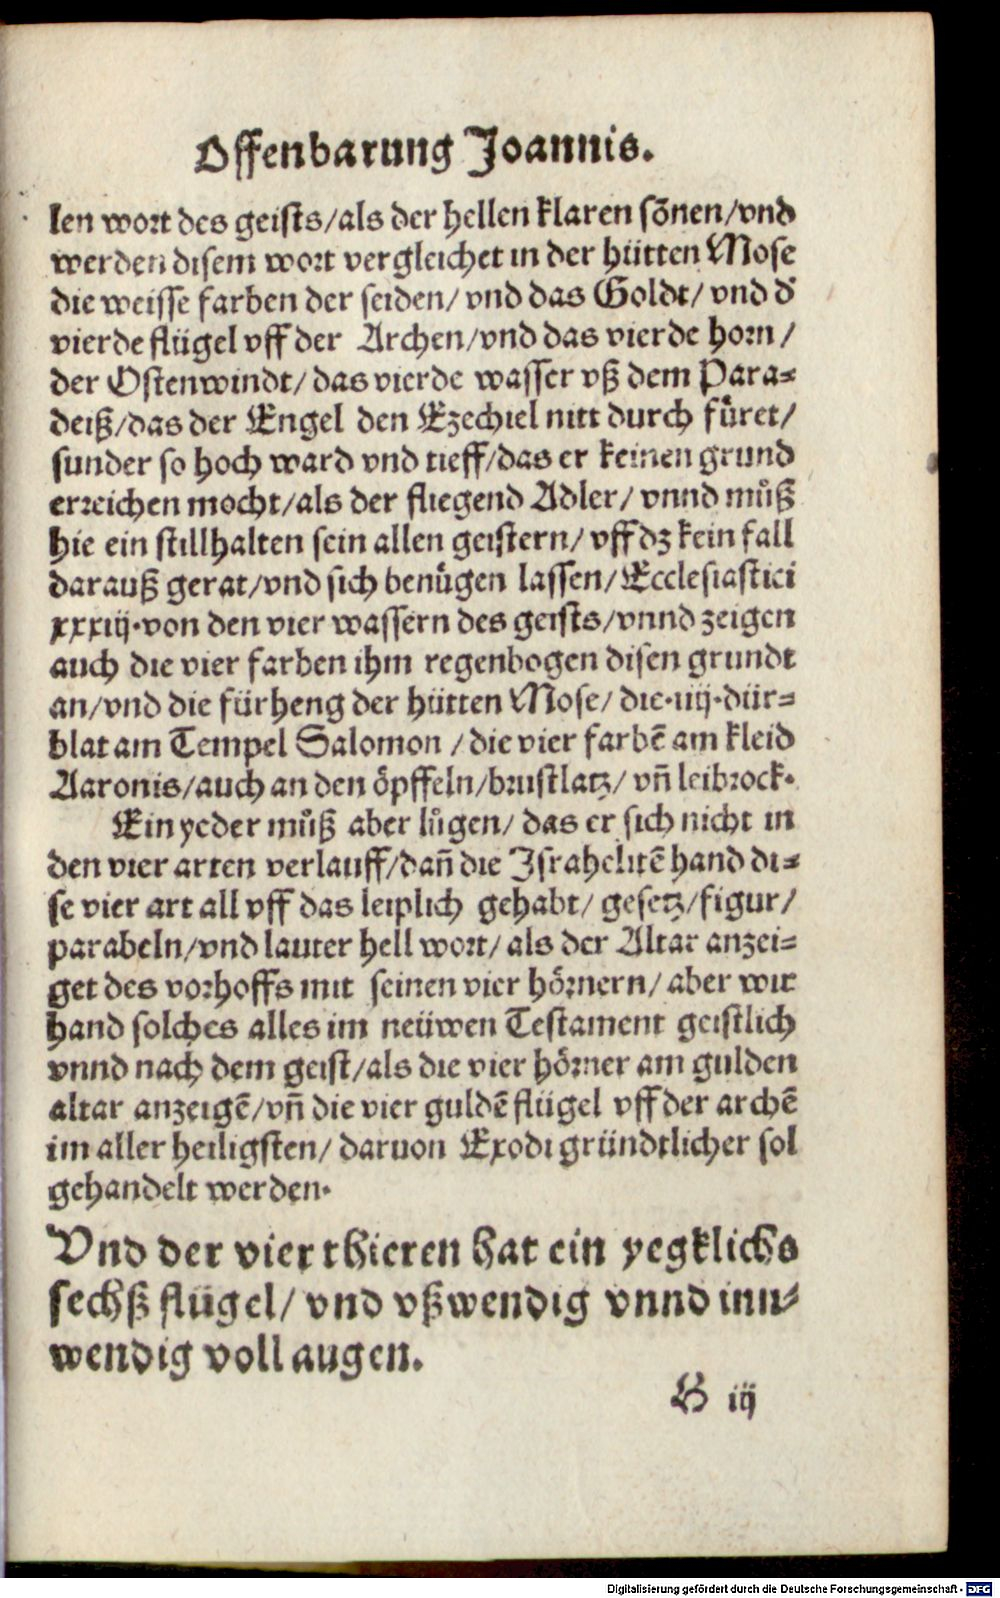 Offenbarung Joannis.
len wort des geists/als der hellen klaren sōnen/vnd
werden disem wort vergleichet in der hütten Mose
die weisse farben der seiden/ vnd das Goldt/ vnd d̓
vierde flügel vff der Archen/vnd das vierde horn/
der Ostenwindt/ das vierde wasser vß dem Para-
deiß/das der Engel den Ezechiel nitt durch fůret/
sunder so hoch ward vnd tieff/das er keinen grund
erreichen mocht/als der fliegend Adler/ vnnd můß
hie ein stillhalten sein allen geistern/ vff dz kein fall
darauß gerat/vnd sich benůgen lassen/Ecclesiastici
xxxiij.von den vier wassern des geists/vnnd zeigen
auch die vier farben ihm regenbogen disen grundt
an/vnd die fürheng der hütten Mose/ die.iiij.dür-
blat am Tempel Salomon / die vier farbē am kleid
Aaronis/auch an den öpffeln/brustlatz/ vn̄ leibrock.
Ein yeder můß aber lůgen/ das er sich nicht in
den vier arten verlauff/dan̄ die Israhelitē hand di-
se vier art all vff das leiplich gehabt/ gesetz/figur/
parabeln/vnd lauter hell wort/ als der Altar anzei-
get des vorhoffs mit seinen vier hörnern/ aber wir
hand solches alles im neüwen Testament geistlich
vnnd nach dem geist/als die vier hörner am gulden
altar anzeigē/vn̄ die vier guldē flügel vff der archē
im aller heiligsten/ daruon Exodi gründtlicher sol
gehandelt werden.
Vnd der vier thieren hat ein yegklichs
sechß flügel/ vnd vßwendig vnnd inn-
wendig voll augen.
B iij
Digitalisierung gefördert durch die Deutsche Forschungsgemeinschaft - DFG